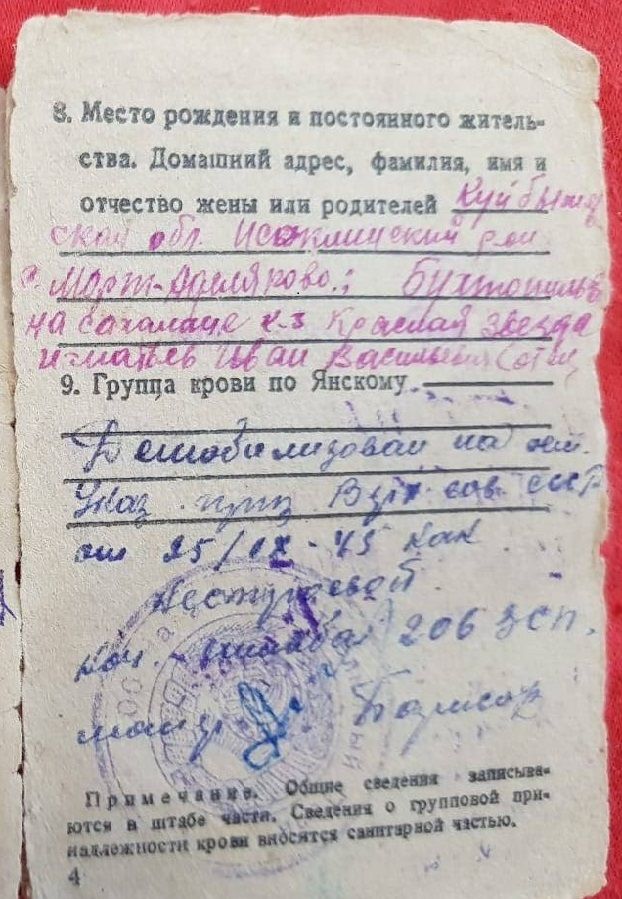 8. Место рождения и постоянного житель-
ства. Домашний адрес, фамилия, имя и
отчество жены или родителей Куйбышев
ской обл. Исаклинский р-он
с. Морт-
на Сахалине к-з Красная звезда
Иван Васильевич
9. Группа крови по Янскому.
Демобилизован на осн.
Указ. през. Верх. сов. СССР
от 25/IX-45 как
Нач. штаба 206 ЗСП.
майор Борисов
Примечание. Общие сведения записыва-
ются в штабе части. Сведения о групповой при-
надлежности крови вносятся санитарной частью.
4